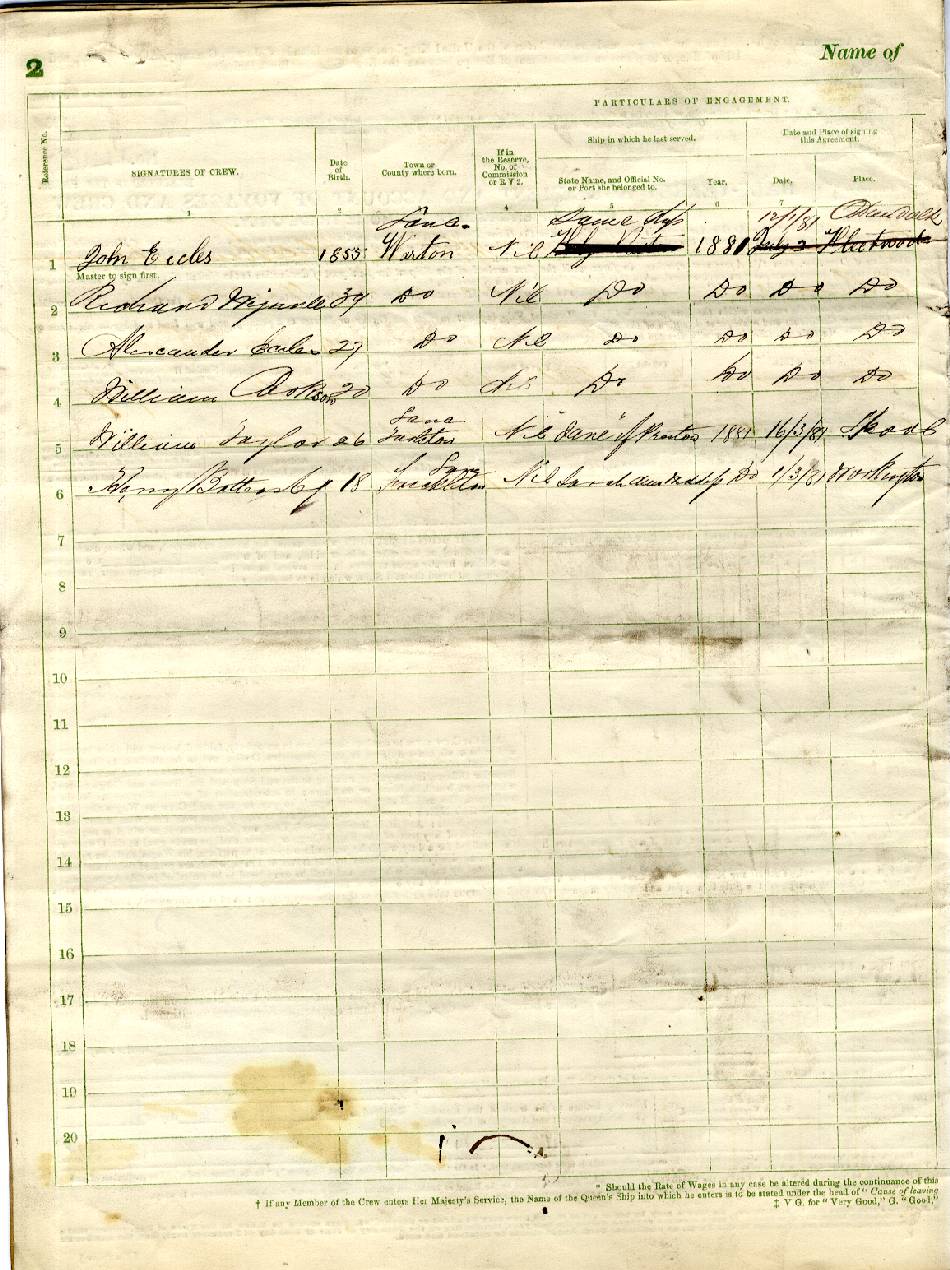 2 Name of
PARTICULARS OF ENGAGEMENT.
Reference No.
SIGNATURES OF CREW.
Date of Birth.
Town or County where born.
If in the Reserve, No. of Commission or R V 2.
Ship in which he last served.
State Name, and Official No. or Port she belonged to.
Year.
Date and Place of signing this Agreement.
Date.
Place.
1 2 4 5 6 7
Lanc. Same Ship 12/1/81
1 John Eccles 1855 Warton Nil 1880 July 2 Fleetwood
Master to sign first.
2 Richard 39 Do Nil Do Do Do Do
3 Alexander 27 Do Nil Do Do Do Do
4 William Cookson 20 Do Nil Do Do Do Do
Lanc
5 William Taylor 26 Tarleton Nil Jane of Preston 1881 16/3/81
Lanc
6 Harry Battersby 18 Freckleton Nil Do 1/3/81 Workington
7
8
9
10
11
12
13
14
15
16
17
18
19
20
* Should the Rate of Wages in any case be altered during the continuance of this
† If any Member of the Crew enters Her Majesty's Service, the Name of the Queen's Ship into which he enters is to be stated under the head of "Cause of leaving
‡ V G. for "Very Good," G. "Good,"